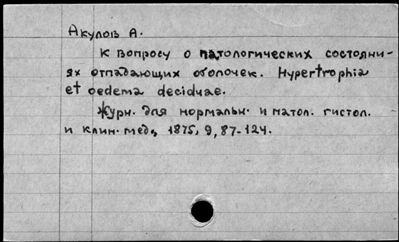 Акулов А.
К вопросу о патологических состояни-
ях отпадающих оболочек. Hypertrophia
et oedema deciduae.
Журн. для нормальн. и патол. гистол.
и клин. мед., 1875, 9, 87-124.